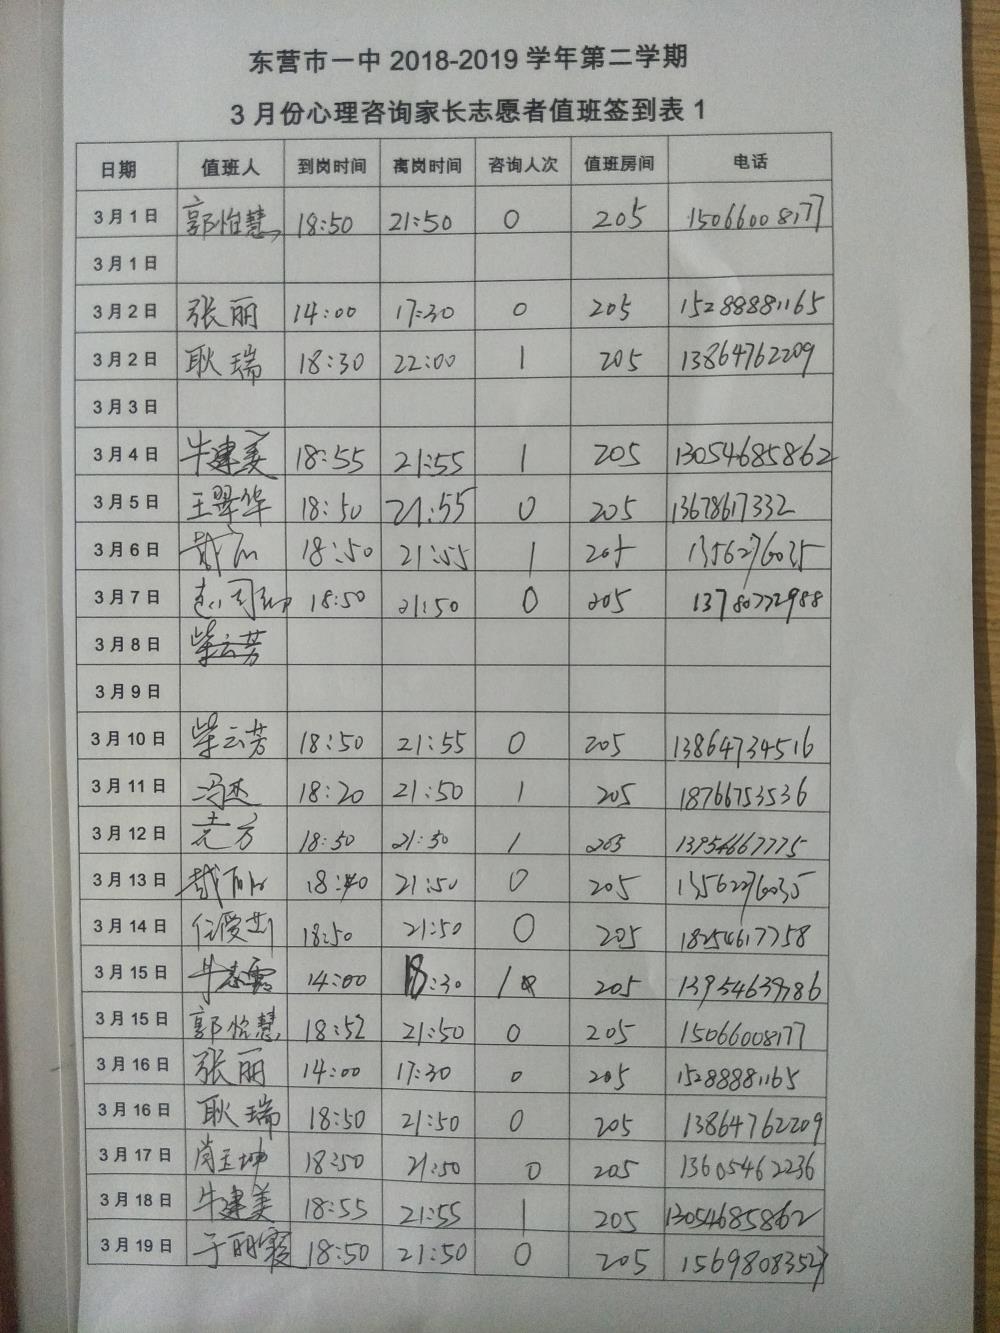 东营市一中 2018-2019 学年第二学期
3 月份心理咨询家长志愿者值班签到表 1
日期 值班人 到岗时间 离岗时间 咨询人次 值班房间 电话
3 月 1 日 郭怡慧 18:50 21:50 0 205 15066008177
3 月 1 日
3 月 2 日 张丽 14:00 17:30 0 205 15288881165
3 月 2 日 耿瑞 18:30 22:00 1 205 13864762209
3 月 3 日
3 月 4 日 牛建美 18:55 21:55 1 205 13054685862
3 月 5 日 王翠华 18:50 21:55 0 205 13678617332
3 月 6 日 18:50 21:55 1 205
3 月 7 日 18:50 21:50 0 205 13780772988
3 月 8 日 柴云芳
3 月 9 日
3 月 10 日 柴云芳 18:50 21:55 0 205 13864734516
3 月 11 日 冯杰 18:20 21:50 1 205 18766753536
3 月 12 日 18:50 21:50 1 205 13954667775
3 月 13 日 21:50 0 205 13562276035
3 月 14 日 任爱兰 18:50 21:50 0 205 18254617758
3 月 15 日 14:00 18:30 1 205 13954639786
3 月 15 日 郭怡慧 18:52 21:50 0 205 15066008177
3 月 16 日 张丽 14:00 17:30 0 205 15288881165
3 月 16 日 耿瑞 18:50 21:50 0 205 13864762209
3 月 17 日 肖玉坤 18:50 21:50 0 205 13605462236
3 月 18 日 牛建美 18:55 21:55 1 205 13054685862
3 月 19 日 于丽霞 18:50 21:50 0 205 15698083527